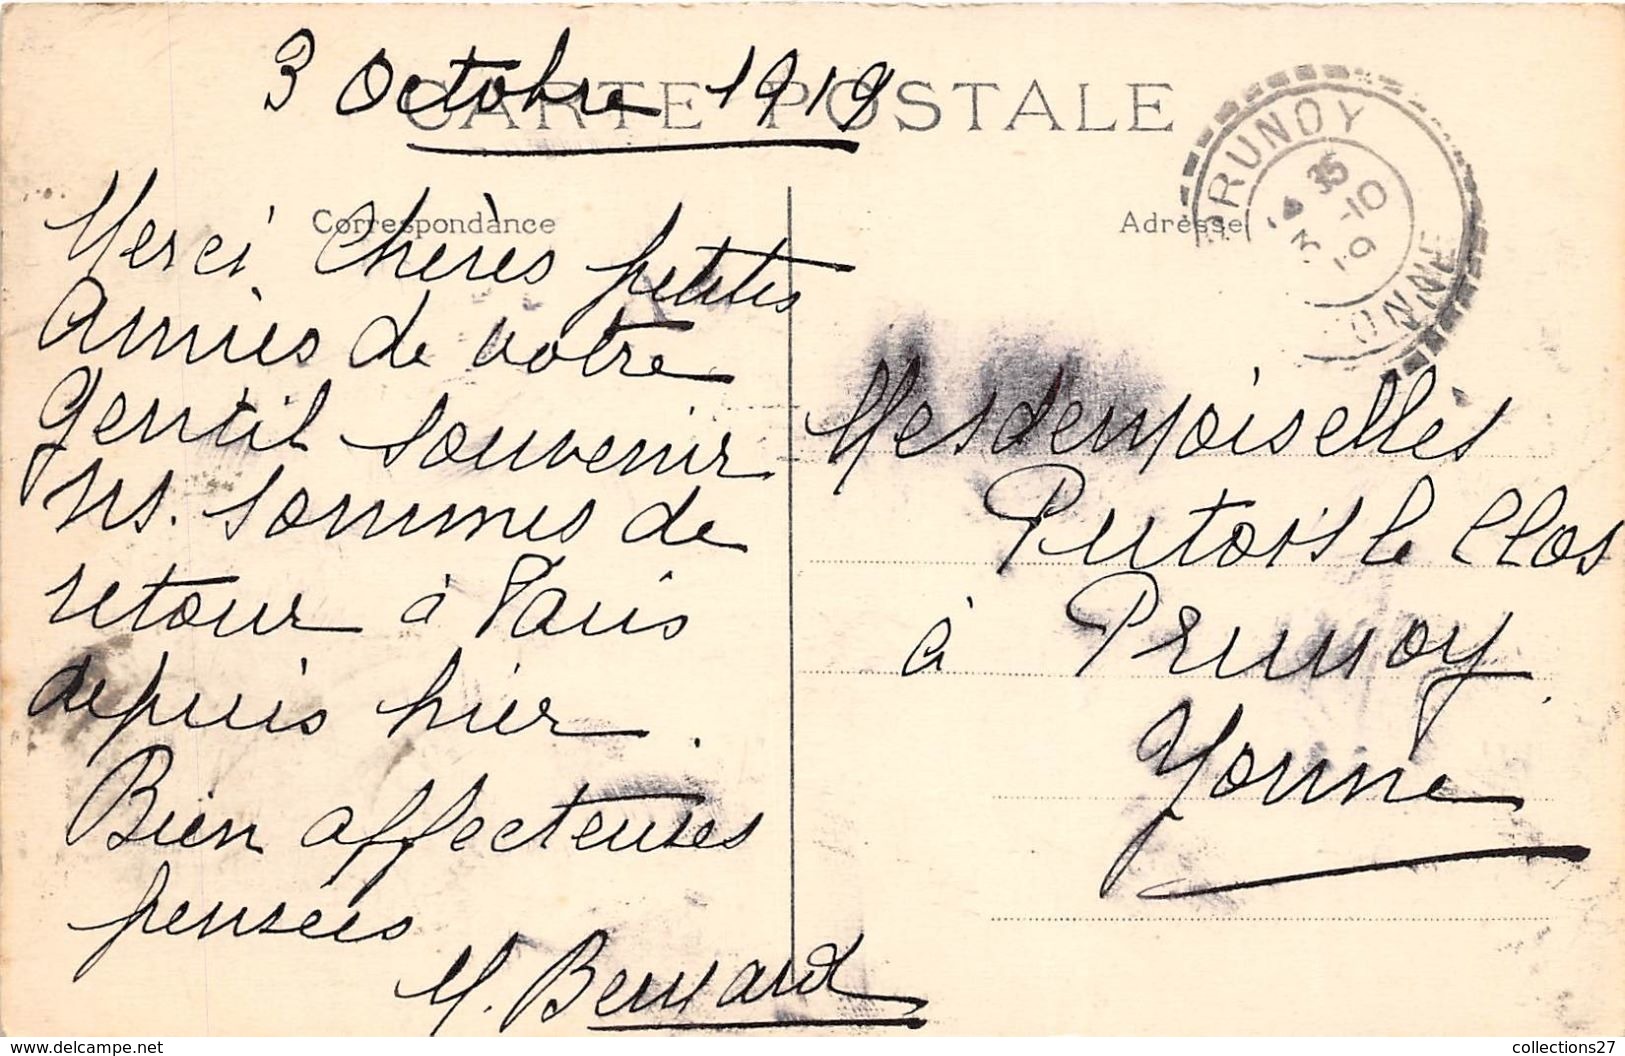 3 Octobre 1919
CARTE POSTALE
Correspondance
Merci Chères petites
Amies de votre
gentil souvenir
ns. sommes de
retour à Paris
depuis hier.
Bien affecteuses
pensées
M. Bernard
Adresse
PRUNOY
35
3 -10
19
YONNE
Mesdemoiselles
Putois le Clos
à Prunoy
Yonne
www.delcampe.net
collections27